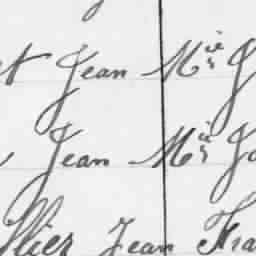 t Jean Mie J
Jean Mie Jo
llier Jean Fra